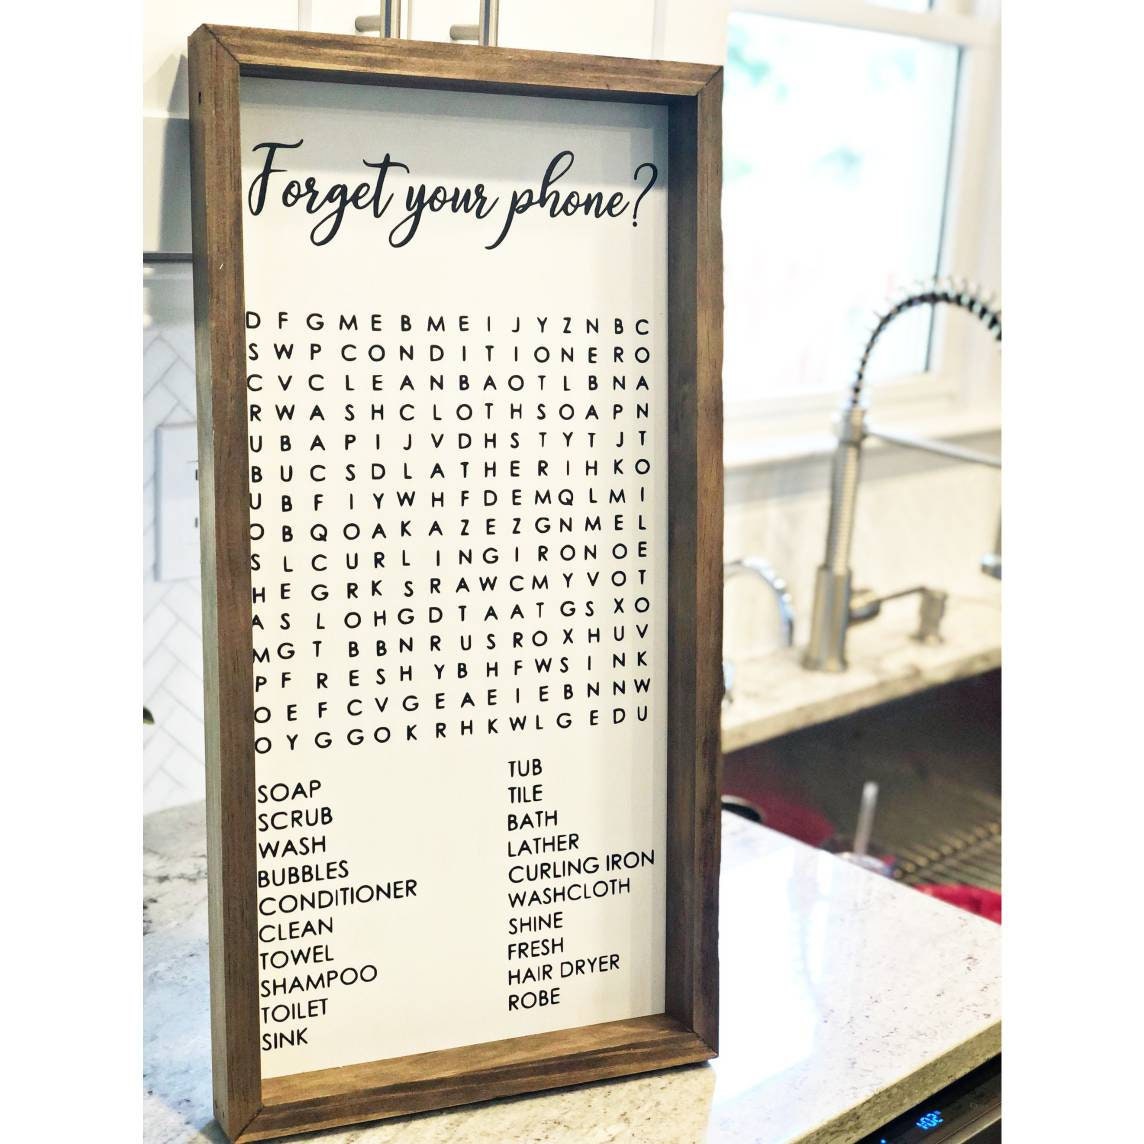 Forget your phone?
D F G M E B M E I J Y Z N B C
S W P C O N D I T I O N E R O
C V C L E A N B A O T L B N A
R W A S H C L O T H S O A P N
U B A P I J V D H S T Y T J T
B U C S D L A T H E R I H K O
U B F I Y W H F D E M Q L M I
O B Q O A K A Z E Z G N M E L
S L C U R L I N G I R O N O E
H E G R K S R A W C M Y V O T
A S L O H G D T A A T G S X O
M G T B B N R U S R O X H U V
P F R E S H Y B H F W S I N K
O E F C V G E A E I E B N N W
O Y G G O K R H K W L G E D U
SOAP
SCRUB
WASH
BUBBLES
CONDITIONER
CLEAN
TOWEL
SHAMPOO
TOILET
SINK
TUB
TILE
BATH
LATHER
CURLING IRON
WASHCLOTH
SHINE
FRESH
HAIR DRYER
ROBE
102°